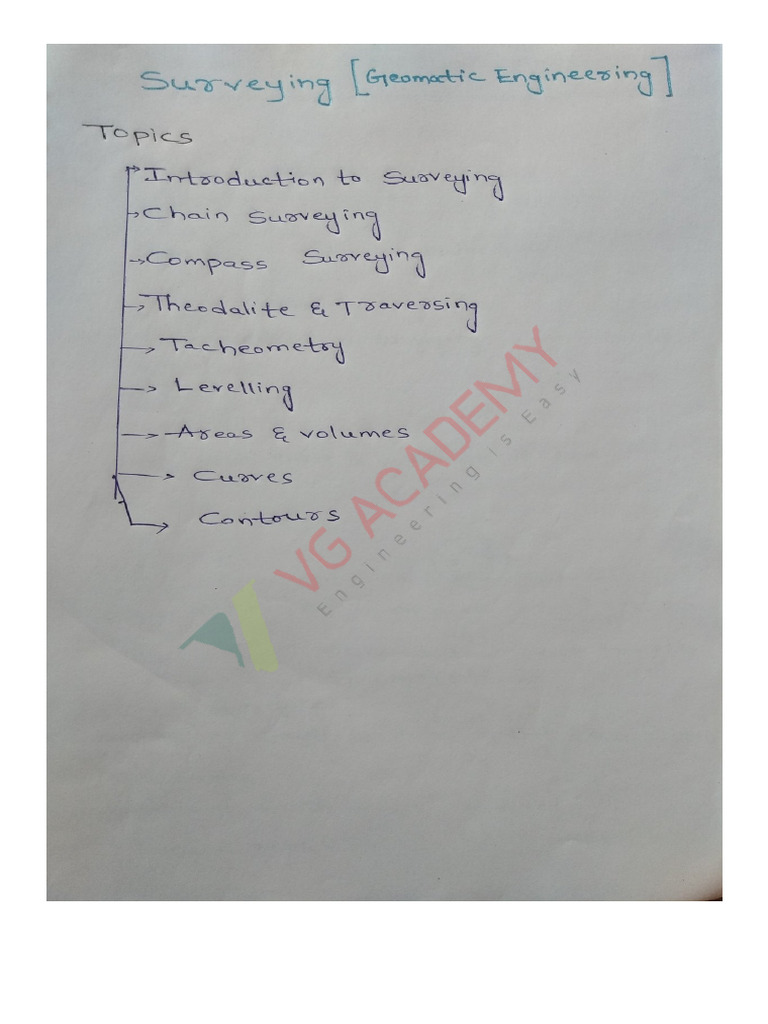 Surveying [Geomatic Engineering]
Topics
Introduction to Surveying
Chain Surveying
Compass Surveying
Theodalite & Traversing
Tacheometry
Levelling
Areas & volumes
Curves
Contours
VG ACADEMY
Engineering is Easy